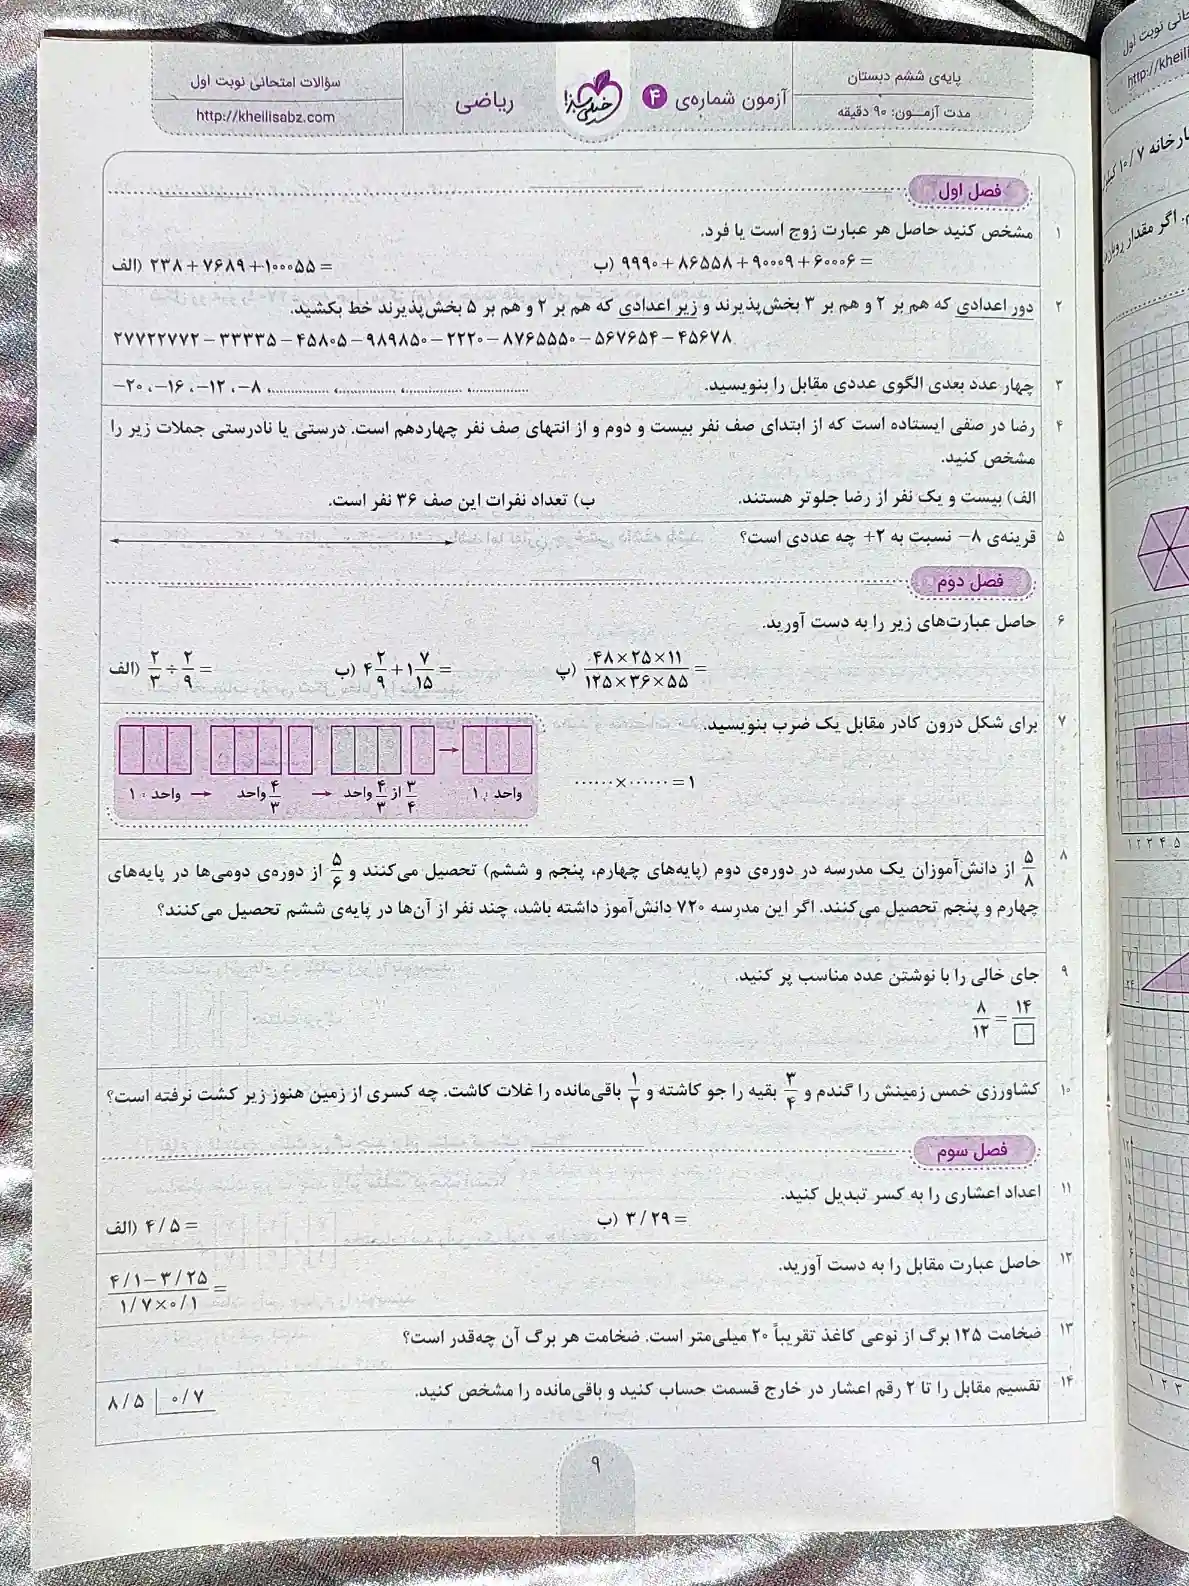 پایه‌ی ششم دبستان
مدت آزمـون: ۹۰ دقیقه
آزمون شماره‌ی ۴
خیلی سبز
ریاضی
سؤالات امتحانی نوبت اول
http://kheilisabz.com
فصل اول
۱ مشخص کنید حاصل هر عبارت زوج است یا فرد.
الف) ۲۳۸+۷۶۸۹+۱۰۰۰۵۵=
ب) ۹۹۹۰+۸۶۵۵۸+۹۰۰۰۹+۶۰۰۰۶=
۲ دور اعدادی که هم بر ۲ و هم بر ۳ بخش‌پذیرند و زیر اعدادی که هم بر ۲ و هم بر ۵ بخش‌پذیرند خط بکشید.
۲۷۷۲۲۷۷۲-۳۳۳۳۵-۴۵۸۰۵-۹۸۹۸۵۰-۲۲۲۰-۸۷۶۵۵۵۰-۵۶۷۶۵۴-۴۵۶۷۸
۳ چهار عدد بعدی الگوی عددی مقابل را بنویسید.
-۲۰، -۱۶، -۱۲، -۸، ............، ............، ............، ............
۴ رضا در صفی ایستاده است که از ابتدای صف نفر بیست و دوم و از انتهای صف نفر چهاردهم است. درستی یا نادرستی جملات زیر را
مشخص کنید.
الف) بیست و یک نفر از رضا جلوتر هستند.
ب) تعداد نفرات این صف ۳۶ نفر است.
۵ قرینه‌ی ۸- نسبت به ۲+ چه عددی است؟
فصل دوم
۶ حاصل عبارت‌های زیر را به دست آورید.
الف) ۲/۳ ÷ ۲/۹ =
ب) ۴ ۲/۹ + ۱ ۷/۱۵ =
پ) ۴۸×۲۵×۱۱ / ۱۲۵×۳۶×۵۵ =
۷ برای شکل درون کادر مقابل یک ضرب بنویسید.
......×......=۱
۱ : واحد → ۴/۳ واحد → ۳/۴ از ۴/۳ واحد ۱ : واحد
۸ ۵/۸ از دانش‌آموزان یک مدرسه در دوره‌ی دوم (پایه‌های چهارم، پنجم و ششم) تحصیل می‌کنند و ۵/۶ از دوره‌ی دومی‌ها در پایه‌های
چهارم و پنجم تحصیل می‌کنند. اگر این مدرسه ۷۲۰ دانش‌آموز داشته باشد، چند نفر از آن‌ها در پایه‌ی ششم تحصیل می‌کنند؟
۹ جای خالی را با نوشتن عدد مناسب پر کنید.
۸/۱۲ = ۱۴/□
۱۰ کشاورزی خمس زمینش را گندم و ۳/۴ بقیه را جو کاشته و ۱/۲ باقی‌مانده را غلات کاشت. چه کسری از زمین هنوز زیر کشت نرفته است؟
فصل سوم
۱۱ اعداد اعشاری را به کسر تبدیل کنید.
الف) ۴/۵=
ب) ۳/۲۹=
۱۲ حاصل عبارت مقابل را به دست آورید.
۴/۱-۳/۲۵
۱/۷×۰/۱
=
۱۳ ضخامت ۱۲۵ برگ از نوعی کاغذ تقریباً ۲۰ میلی‌متر است. ضخامت هر برگ آن چه‌قدر است؟
۱۴ تقسیم مقابل را تا ۲ رقم اعشار در خارج قسمت حساب کنید و باقی‌مانده را مشخص کنید.
۸/۵ | ۰/۷
۹